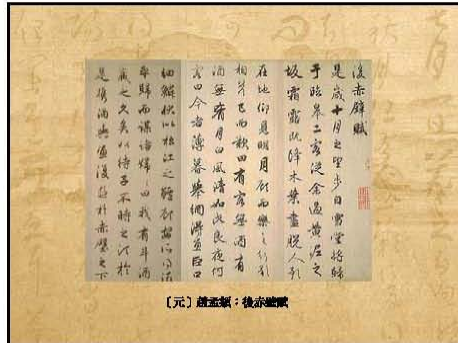 後赤壁賦
是歲十月之望步自雪堂將歸
于臨皋二客從余過黃泥之
坂霜露既降木葉盡脫人影
在地仰見明月顧而樂之行歌
相答已而歎曰有客無酒有
酒無肴月白風清如此良夜何
客曰今者薄暮舉網得魚巨口
細鱗狀似松江之鱸顧安所得酒
乎歸而謀諸婦婦曰我有斗酒
藏之久矣以待子不時之須於
是攜酒與魚復遊於赤壁之下
〔元〕趙孟頫：後赤壁賦